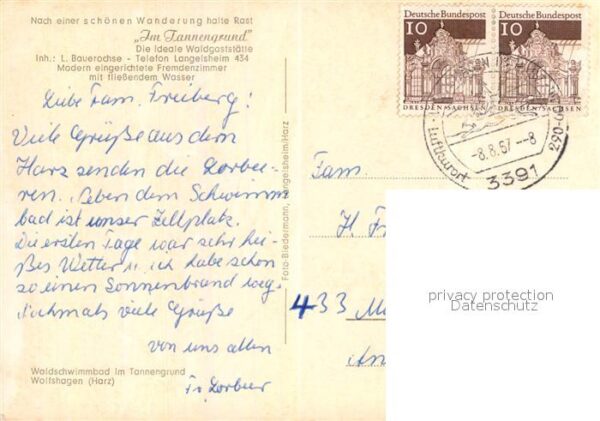 Nach einer schönen Wanderung halte Rast
„Im Tannengrund"
Die ideale Waldgaststätte
Inh.: L. Bauerochse - Telefon Langelsheim 434
Modern eingerichtete Fremdenzimmer
mit fließendem Wasser
Liebe Fam. Freiberg!
Viele Grüße aus dem
Harz senden die
ren. Neben dem Schwimm
bad ist unser Zeltplatz.
Die ersten Tage war sehr hei-
ßes Wetter u. ich habe schon
so einen Sonnenbrand weg.
Nochmals viele Grüße
von uns allen
Waldschwimmbad im Tannengrund
Wolfshagen (Harz)
Foto-Biedermann, Langelsheim/Harz
Deutsche Bundespost
10
DRESDEN/SACHSEN
Deutsche Bundespost
10
DRESDEN/SACHSEN
Luftkurort
-8.8.67--8
3391
Fam.
H. Fr
433 M
An
privacy protection
Datenschutz